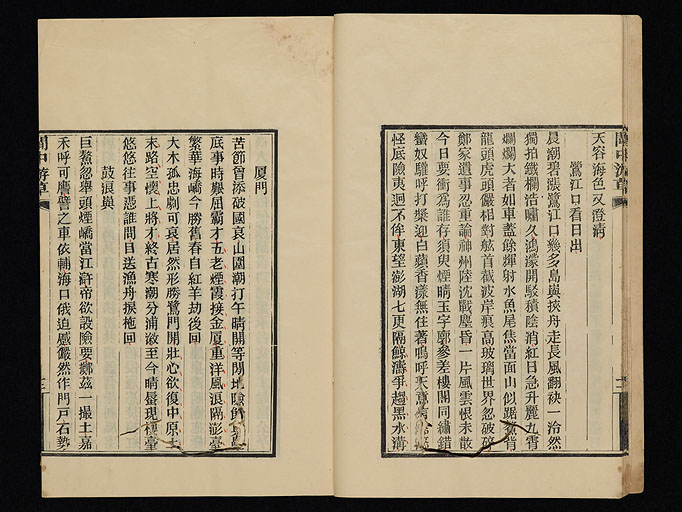 天容海色又澄清
鷺江口看日出
晨潮碧漲鷺江口幾多島與挾舟走長風翻袂一泠然
獨拍鐵欄浩嘯久鴻濛開駁積陰消紅日急升麗九霄
爛爛大者如車蓋餘煇射水魚尾焦當面山似踞鰲背
龍頭虎頭儼相對舷首截波岸痕高玻璃世界忽破碎
鄭家遺事忍重論神州陸沈戰塵昏一片風雲恨未散
今日要衝為誰存須臾煙晴玉宇廓參差樓閣同繡錯
蠻奴驩呼打槳迎白蘋香漾無住著嗚呼天意
怪底險夷迥不侔東望澎湖七更隔鯨濤爭趨黑水溝
閩中游草
二
廈門
苦節曾添破國哀山圍潮打午晴開等閒地險
底事時艱屈霸才五老煙霞接金厦重洋風浪隔澎臺
繁華海嶠今勝舊春自紅羊劫後回
大木孤忠劇可哀居然形勝鷺門開壯心欲復中原土
末路空懷上將才終古寒潮分浦潊至今晴蜃現樓臺
悠悠往事憑誰問目送漁舟捩柁回
鼓浪嶼
巨鰲忽舉頭煙嶠當江滸帝欲設險要鄉茲一撮土嘉
禾呼可譍譬之車依輔海口俄迫蹙儼然作門戶石勢
閩中游草
三